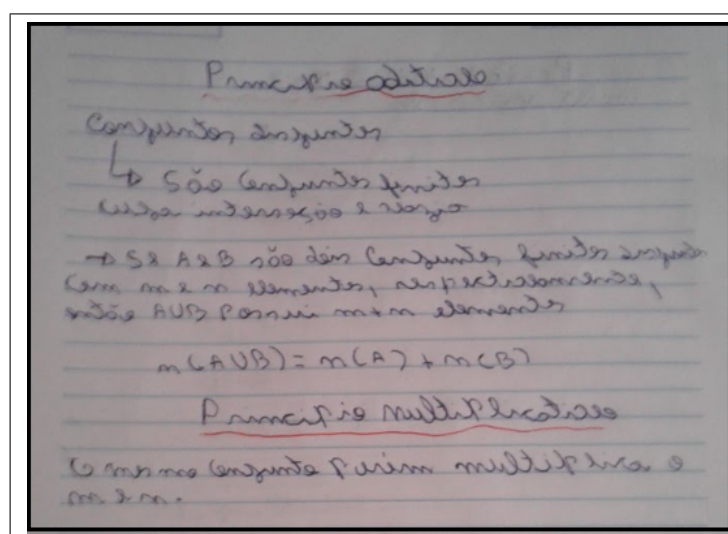 Principio aditivo
Conjuntos disjuntos
↳ São conjuntos finitos
cuja interseção é vazia
→ Se A e B são dois conjuntos finitos disjuntos
com m e n elementos, respectivamente,
então AUB possui m+n elementos
n(AUB) = n(A) + n(B)
Principio multiplicativo
O mesmo conjunto porém multiplica o
m e n.